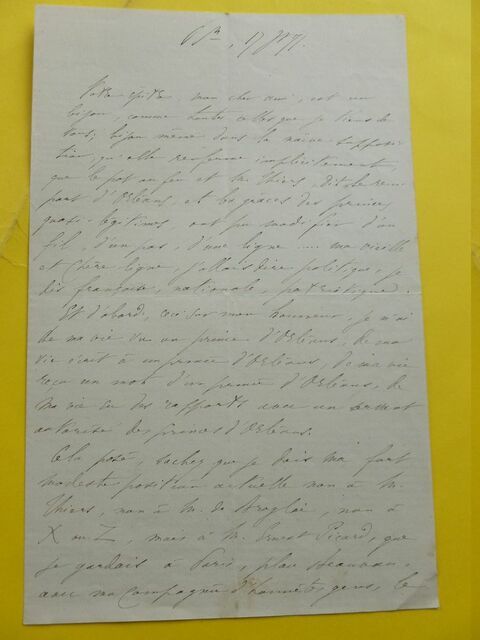 17
Votre épître, mon cher ami, est un
bijou, comme toutes celles que je tiens de
vous; bijou même dans la naïve supposi-
tion, qu'elle renferme implicitement,
que le pot au feu et M. Thiers, dit le rem-
part d'Orléans, et les grâces des princes
quasi-légitimes, ont pu modifier d'un
fil, d'un pas, d'une ligne .... ma vieille
et chère ligne, j'allais dire politique, je
dis française, nationale, patriotique.
Et d'abord, ceci sur mon honneur, je n'ai
de ma vie vu un prince d'Orléans, de ma
vie écrit à un prince d'Orléans, de ma vie
reçu un mot d'un prince d'Orléans, de
ma vie eu des rapports avec un
autorisé des princes d'Orléans.
Cela posé, sachez que je dois ma fort
modeste position actuelle non à M.
Thiers, non à M. de Broglie, non à
X ou Z, mais à M. Ernest Picard, que
je gardais à Paris, place Beauvau,
avec ma compagnie d'honnêtes gens, le